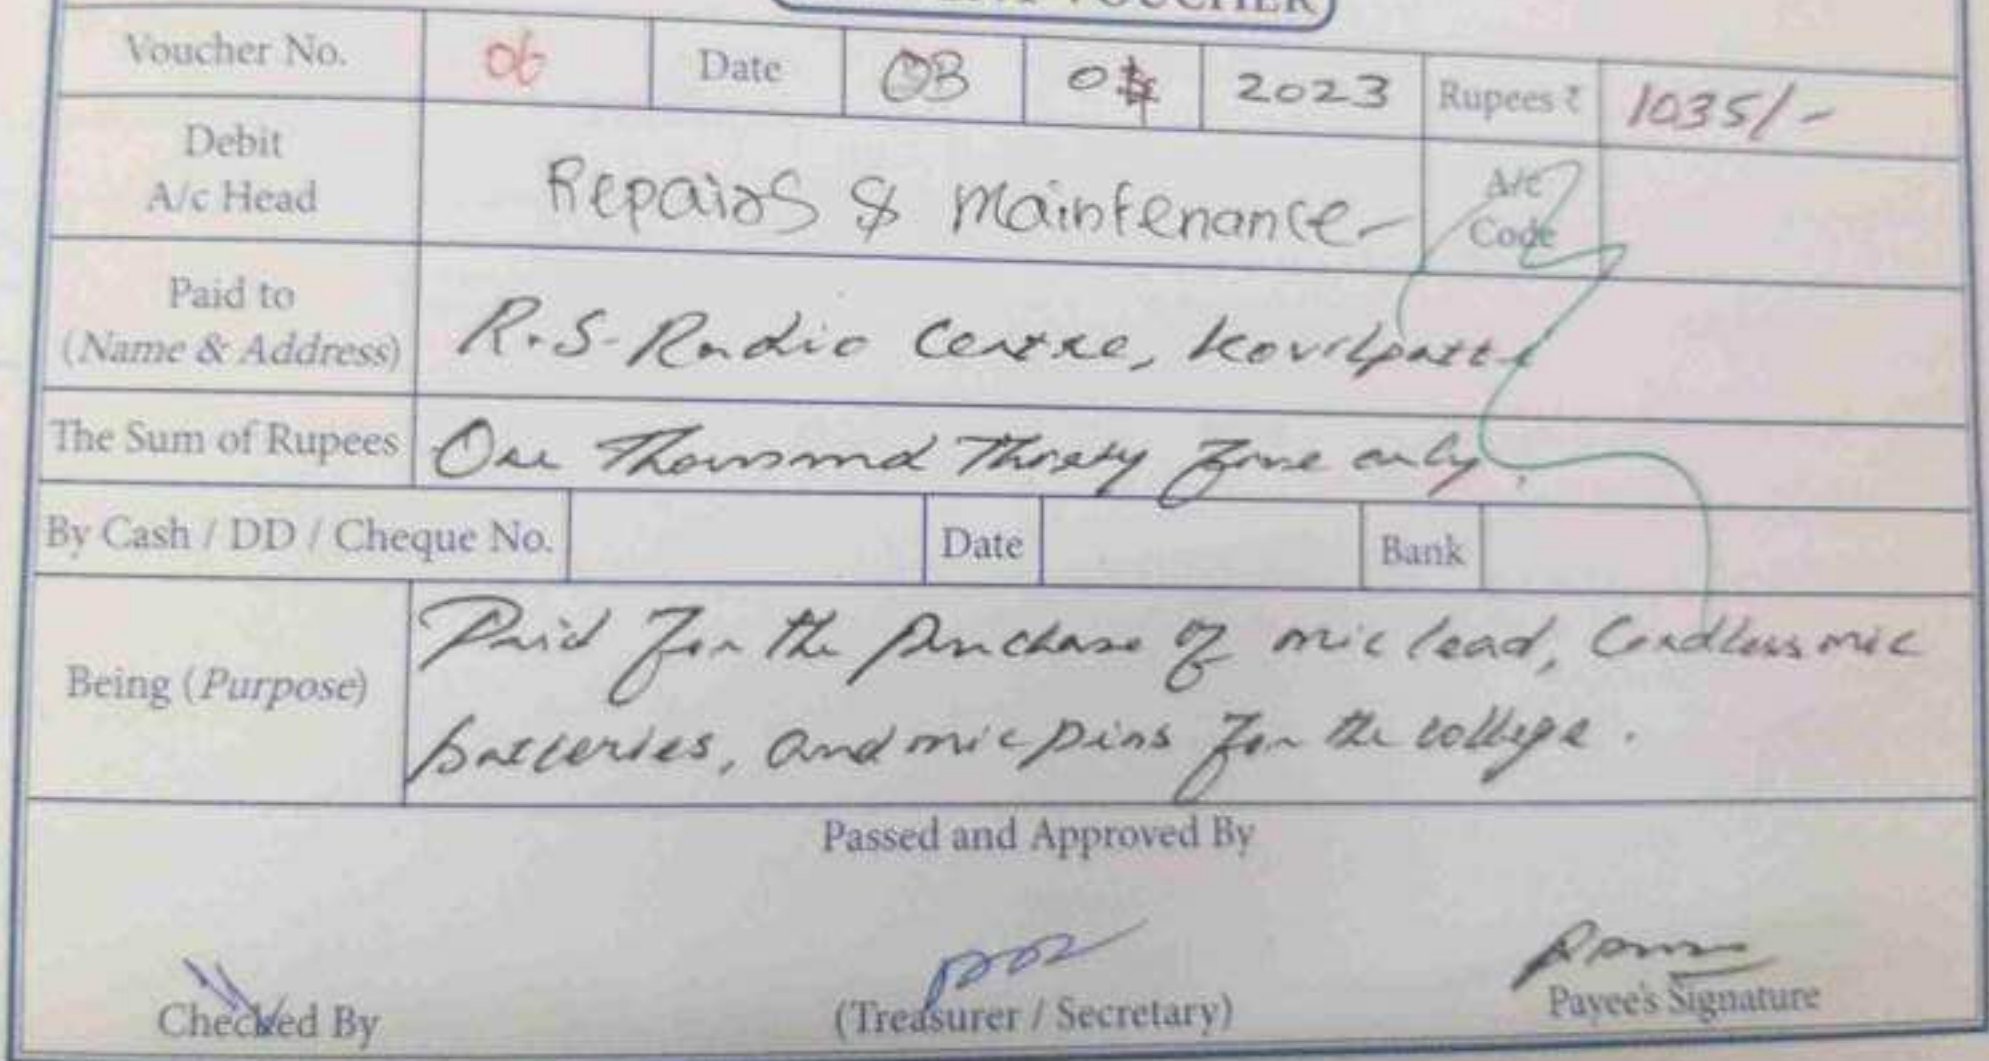 VOUCHER
Voucher No. 06 Date 03 2023 Rupees ₹ 1035/-
Debit A/c Head Repairs & Maintenance A/c Code
Paid to (Name & Address) R.S. Radio Centre, Kovilpatti
The Sum of Rupees One Thousand Thirty Five only.
By Cash / DD / Cheque No. Date Bank
Being (Purpose) Paid for the purchase of mic lead, Cordless mic
batteries, and mic pins for the college.
Passed and Approved By
Checked By (Treasurer / Secretary) Payee's Signature